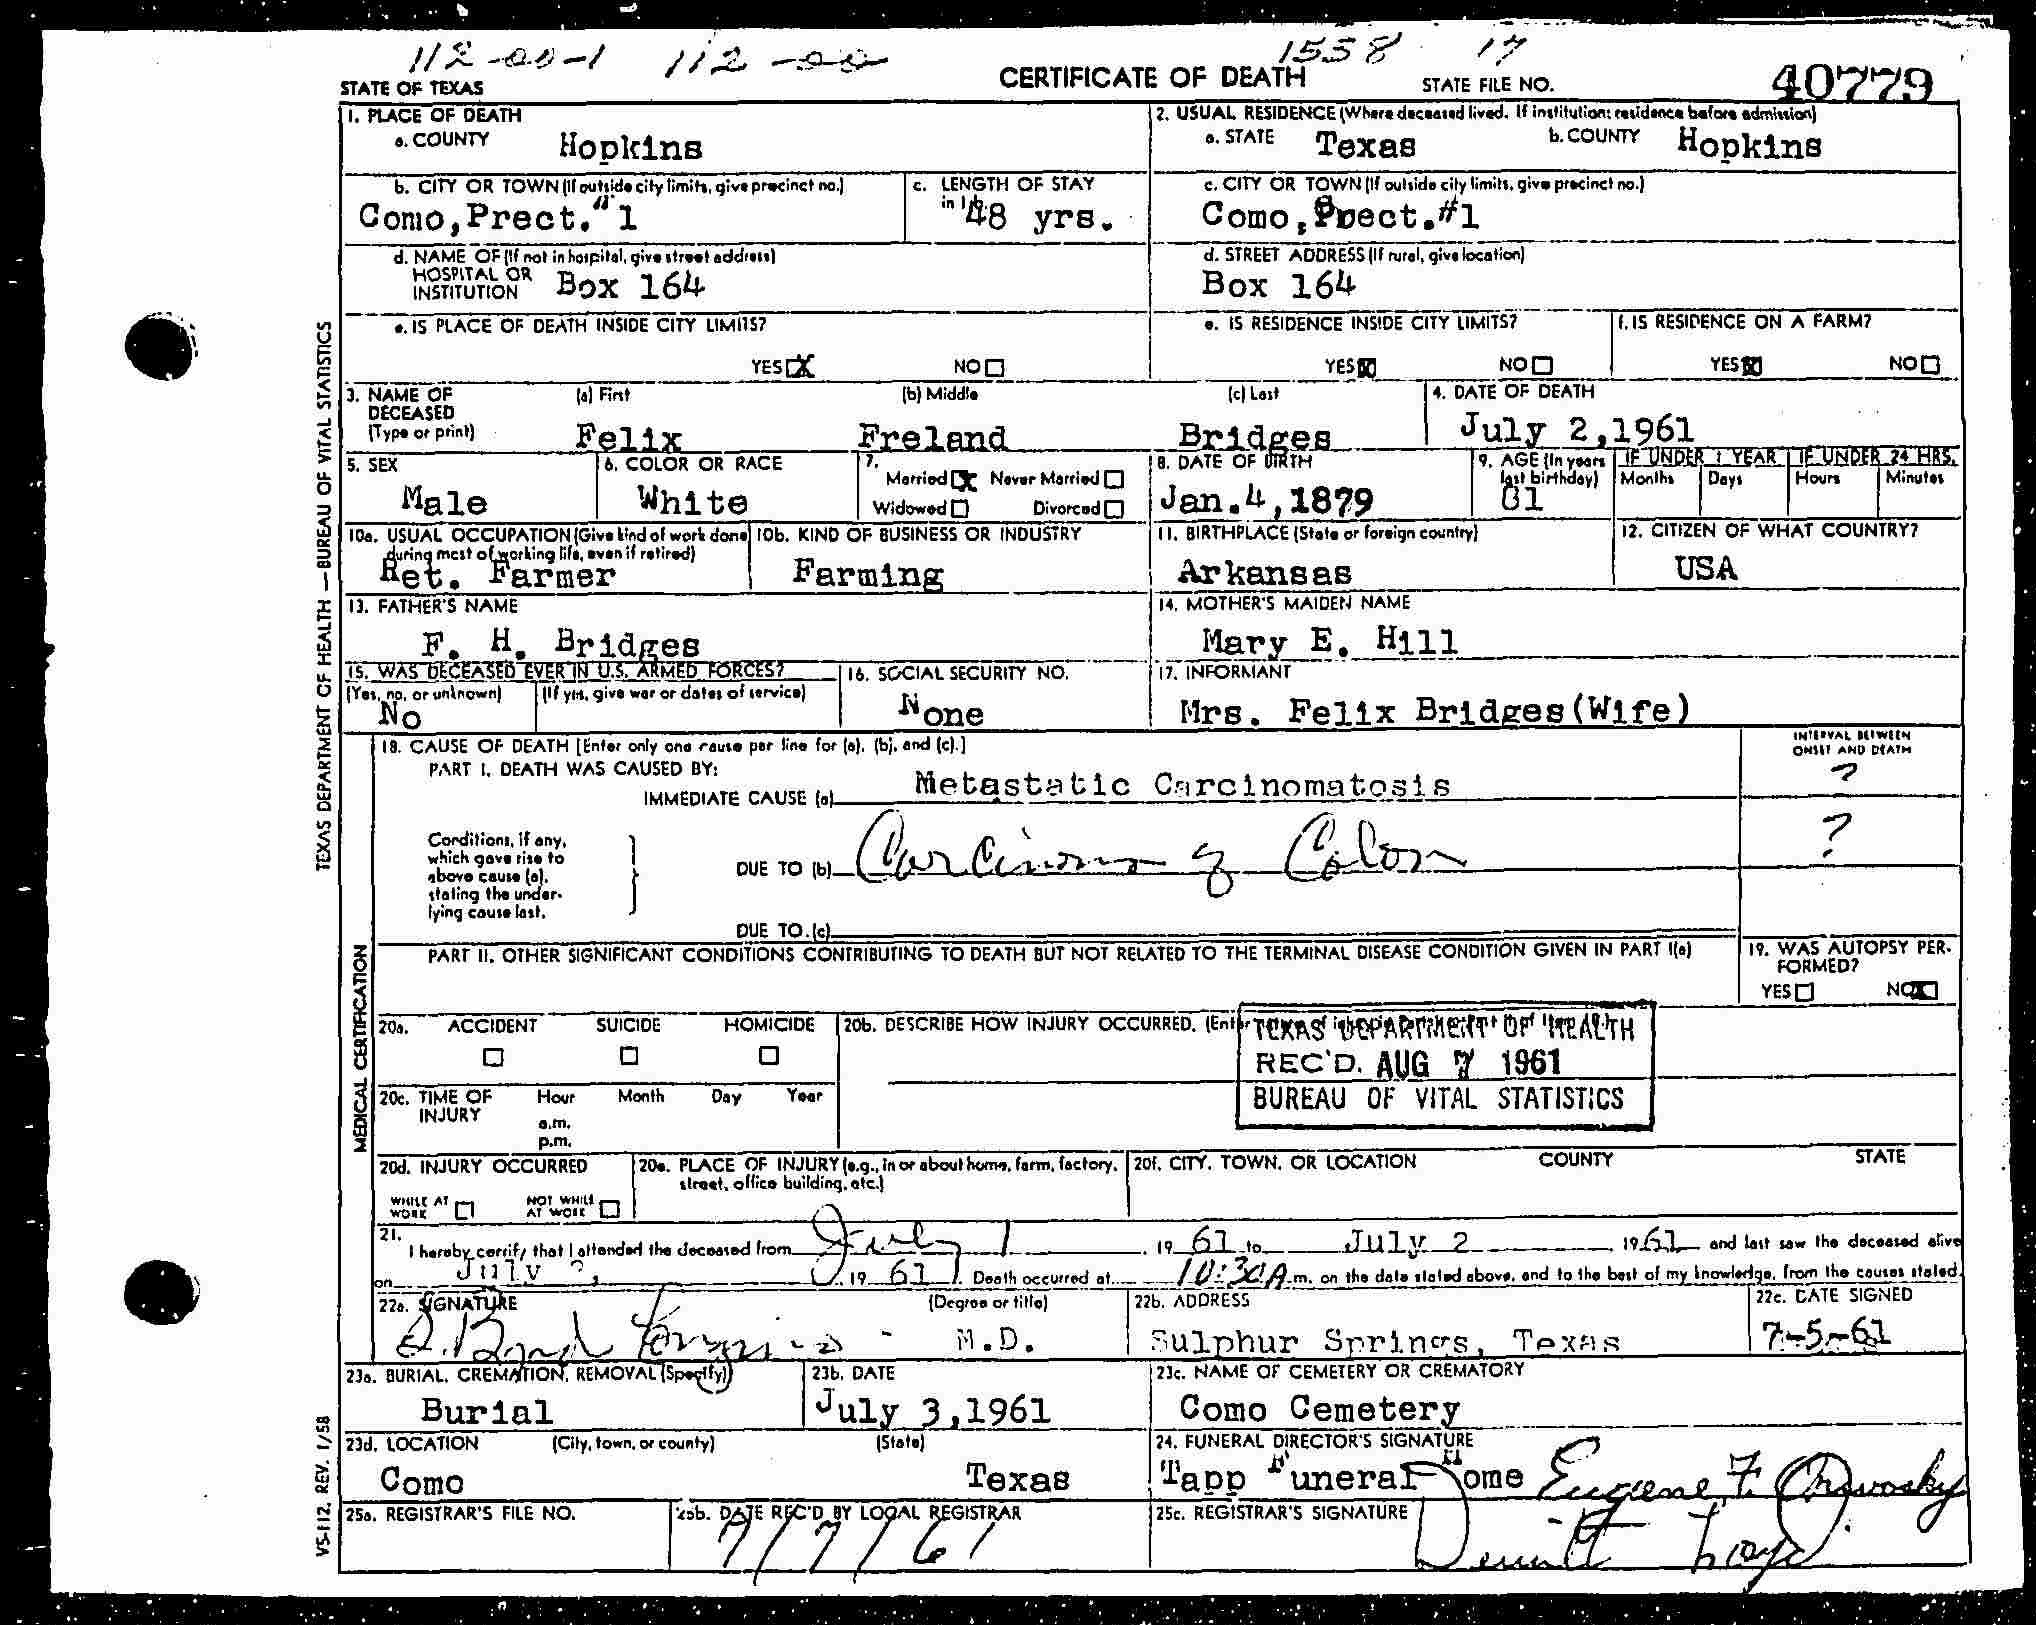 112-00-1 112-00 1558 17
STATE OF TEXAS CERTIFICATE OF DEATH STATE FILE NO. 40779
1. PLACE OF DEATH
a. COUNTY Hopkins
2. USUAL RESIDENCE (Where deceased lived. If institution: residence before admission)
a. STATE Texas b. COUNTY Hopkins
b. CITY OR TOWN (If outside city limits, give precinct no.)
Como, Prect. #1
c. LENGTH OF STAY
in 1b. 48 yrs.
c. CITY OR TOWN (If outside city limits, give precinct no.)
Como, Prect.#1
d. NAME OF (If not in hospital, give street address)
HOSPITAL OR
INSTITUTION Box 164
d. STREET ADDRESS (If rural, give location)
Box 164
e. IS PLACE OF DEATH INSIDE CITY LIMITS?
YES X NO
e. IS RESIDENCE INSIDE CITY LIMITS?
YES X NO
f. IS RESIDENCE ON A FARM?
YES X NO
3. NAME OF
DECEASED
(Type or print)
(a) First (b) Middle (c) Last
Felix Freland Bridges
4. DATE OF DEATH
July 2,1961
5. SEX
Male
6. COLOR OR RACE
White
7.
Married X Never Married
Widowed Divorced
8. DATE OF BIRTH
Jan.4,1879
9. AGE (In years
last birthday)
81
IF UNDER 1 YEAR IF UNDER 24 HRS.
Months Days Hours Minutes
10a. USUAL OCCUPATION (Give kind of work done
during most of working life, even if retired)
Ret. Farmer
10b. KIND OF BUSINESS OR INDUSTRY
Farming
11. BIRTHPLACE (State or foreign country)
Arkansas
12. CITIZEN OF WHAT COUNTRY?
USA
13. FATHER'S NAME
F. H. Bridges
14. MOTHER'S MAIDEN NAME
Mary E. Hill
15. WAS DECEASED EVER IN U.S. ARMED FORCES?
(Yes, no, or unknown) (If yes, give war or dates of service)
No
16. SOCIAL SECURITY NO.
None
17. INFORMANT
Mrs. Felix Bridges(Wife)
18. CAUSE OF DEATH [Enter only one cause per line for (a), (b), and (c).]
PART I. DEATH WAS CAUSED BY:
IMMEDIATE CAUSE (a) Metastatic Carcinomatosis
INTERVAL BETWEEN
ONSET AND DEATH
?
Conditions, if any,
which gave rise to
above cause (a),
stating the under-
lying cause last.
DUE TO (b) Carcinoma of Colon ?
DUE TO (c)
PART II. OTHER SIGNIFICANT CONDITIONS CONTRIBUTING TO DEATH BUT NOT RELATED TO THE TERMINAL DISEASE CONDITION GIVEN IN PART I(a)
19. WAS AUTOPSY PER-
FORMED?
YES NO X
20a. ACCIDENT SUICIDE HOMICIDE
20b. DESCRIBE HOW INJURY OCCURRED. (Enter
TEXAS DEPARTMENT OF HEALTH
REC'D. AUG 7 1961
BUREAU OF VITAL STATISTICS
20c. TIME OF
INJURY
Hour Month Day Year
a.m.
p.m.
20d. INJURY OCCURRED
WHILE AT
WORK
NOT WHILE
AT WORK
20e. PLACE OF INJURY (e.g., in or about home, farm, factory,
street, office building, etc.)
20f. CITY, TOWN, OR LOCATION COUNTY STATE
21.
I hereby certify that I attended the deceased from July 1 19 61 to July 2 1961 and last saw the deceased alive
on July 19 61. Death occurred at 10:30A.m. on the date stated above, and to the best of my knowledge, from the causes stated.
22a. SIGNATURE (Degree or title)
M.D.
22b. ADDRESS
Sulphur Springs, Texas
22c. DATE SIGNED
7-5-61
23a. BURIAL, CREMATION, REMOVAL (Specify)
Burial
23b. DATE
July 3,1961
23c. NAME OF CEMETERY OR CREMATORY
Como Cemetery
23d. LOCATION (City, town, or county) (State)
Como Texas
24. FUNERAL DIRECTOR'S SIGNATURE
Tapp Funeral Home Eugene F.
25a. REGISTRAR'S FILE NO.
25b. DATE REC'D BY LOCAL REGISTRAR
7/7/61
25c. REGISTRAR'S SIGNATURE
TEXAS DEPARTMENT OF HEALTH — BUREAU OF VITAL STATISTICS
MEDICAL CERTIFICATION
VS-112. REV. 1/58